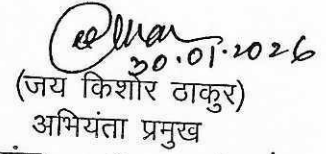 30.01.2026
(जय किशोर ठाकुर)
अभियंता प्रमुख